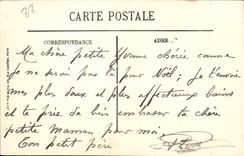 CARTE POSTALE
CORRESPONDANCE
ADRESSE
Ma chère petite Yvonne chérie comme
je ne serai pas là pour Noël, je t'envoie
mes plus doux et plus affectueux baisers
et te prie de bien embrasser ta chère
petite Maman pour moi.
Ton petit père